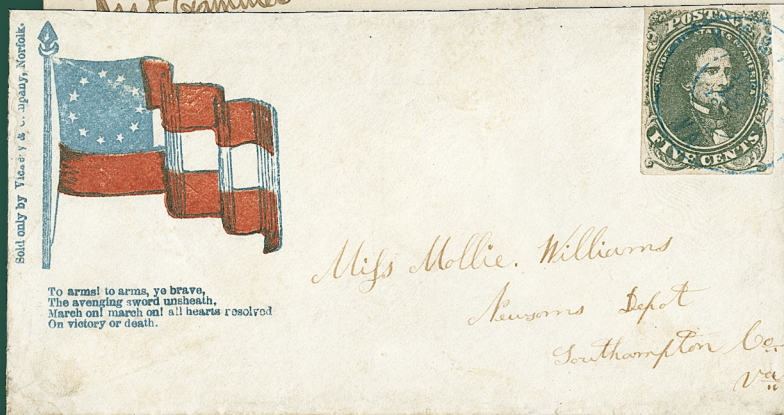 Sold only by Vickery & Company, Norfolk.
POSTAGE
CONFEDERATE STATES OF AMERICA
FIVE CENTS
To arms! to arms, ye brave,
The avenging sword unsheath,
March on! march on! all hearts resolved
On victory or death.
Miss Mollie. Williams
Newsoms Depot
Southampton Co.
Va